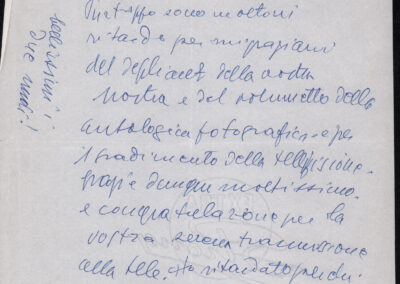 Purtroppo sono molto in
ritardo per ringraziarvi
del depliant della vostra
mostra e del volumetto della
antologica fotografica e per
il gradimento della
grazie dunque moltissimo
e congratulazione per la
vostra serena trasmissione
alla tele. Ho ritardato perché
bellissimi i
due nudi!